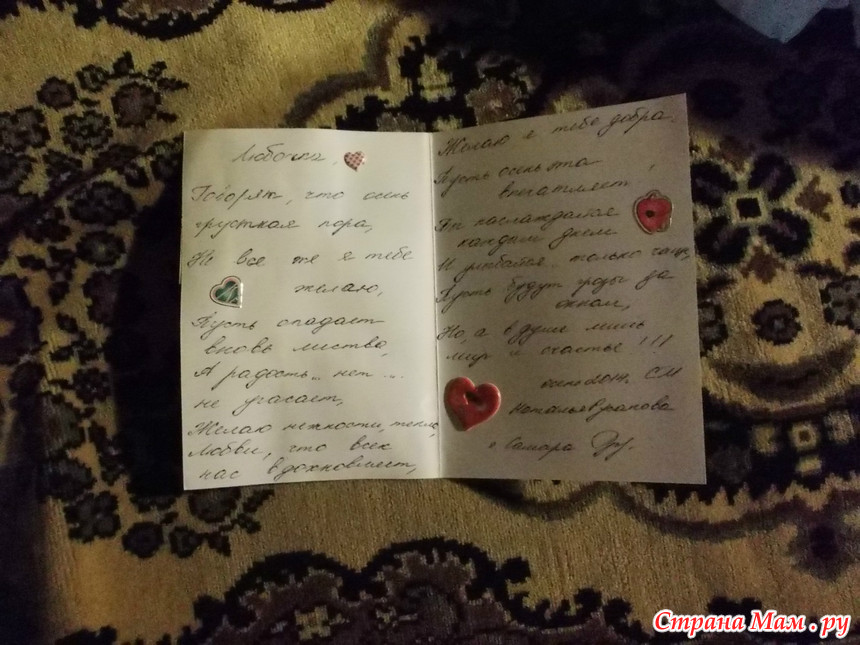 Любочка,
Говорят, что осень
грустная пора,
Но все же я тебе
желаю,
Пусть опадает
вновь листва,
А радость... нет...
не угасает,
Желаю нежности, тепла,
Любви, что всех
нас вдохновляет,
Желаю я тебе добра.
Пусть осень эта
впечатляет,
наслаждайся
каждым днем
И улыбайся только чаще,
Пусть будут грозы за
окном,
Но, а в душе лишь
мир и счастье!!!
осень 2014. СМ
г Самара
Страна Мам.ру